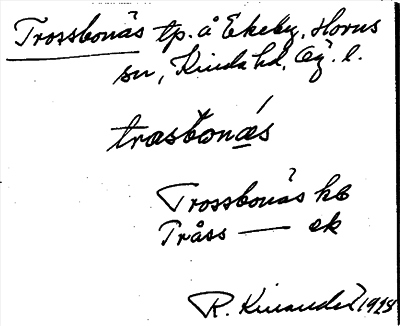 Trossbonäs tp. å Ekeby, Horns
sn, Kinda hd, Ög. l.
trastonä́s
Trossbonäs hb
Tråss — ek
R. Kinander 1925